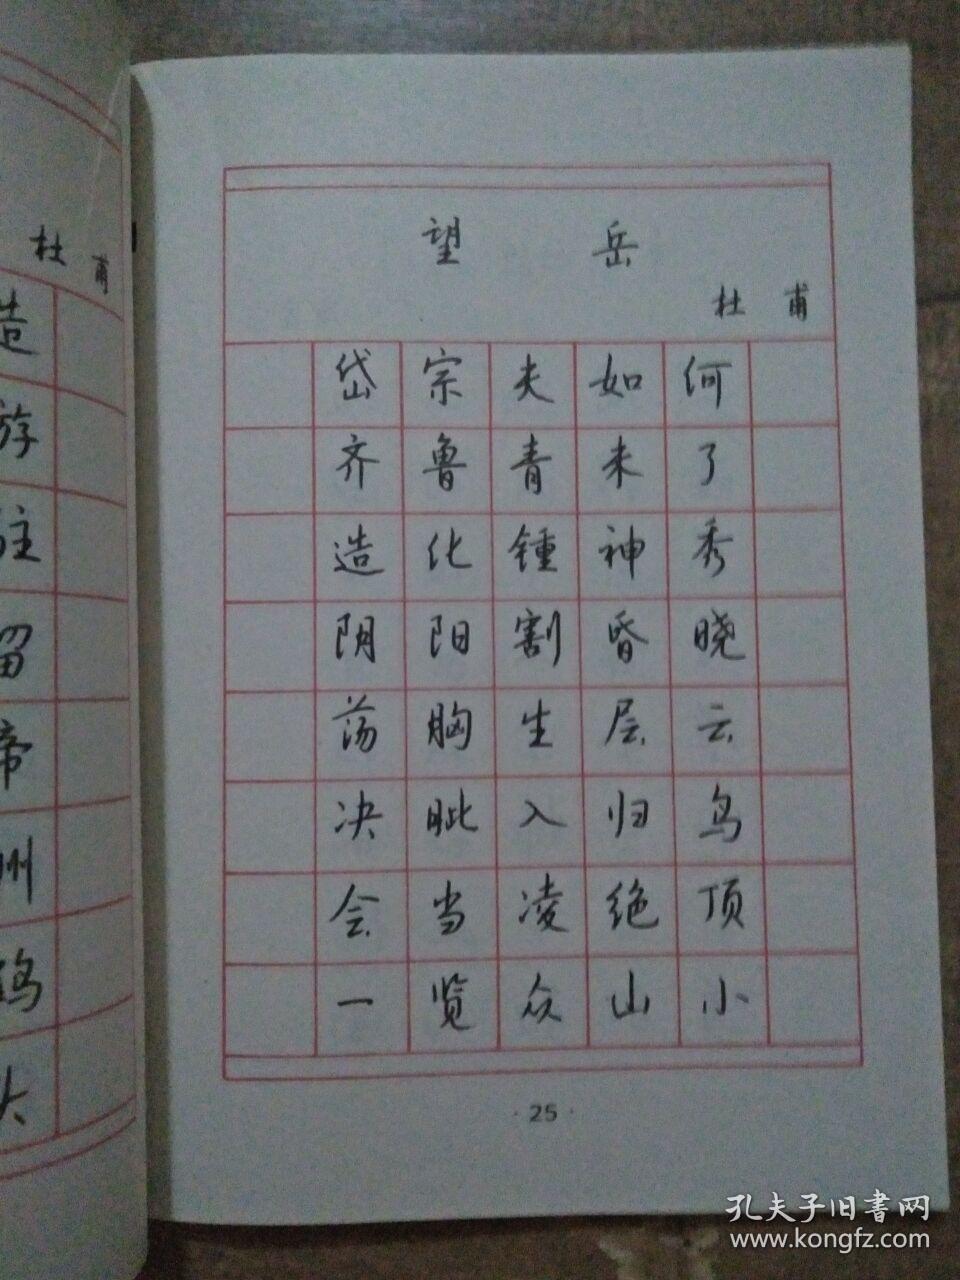 杜甫
造
游
注
留
帝
洲
鸡
大
望岳
杜甫
岱宗夫如何
齐鲁青未了
造化锺神秀
阴阳割昏晓
荡胸生层云
决眦入归鸟
会当凌绝顶
一览众山小
·25·
孔夫子旧书网
www.kongfz.com